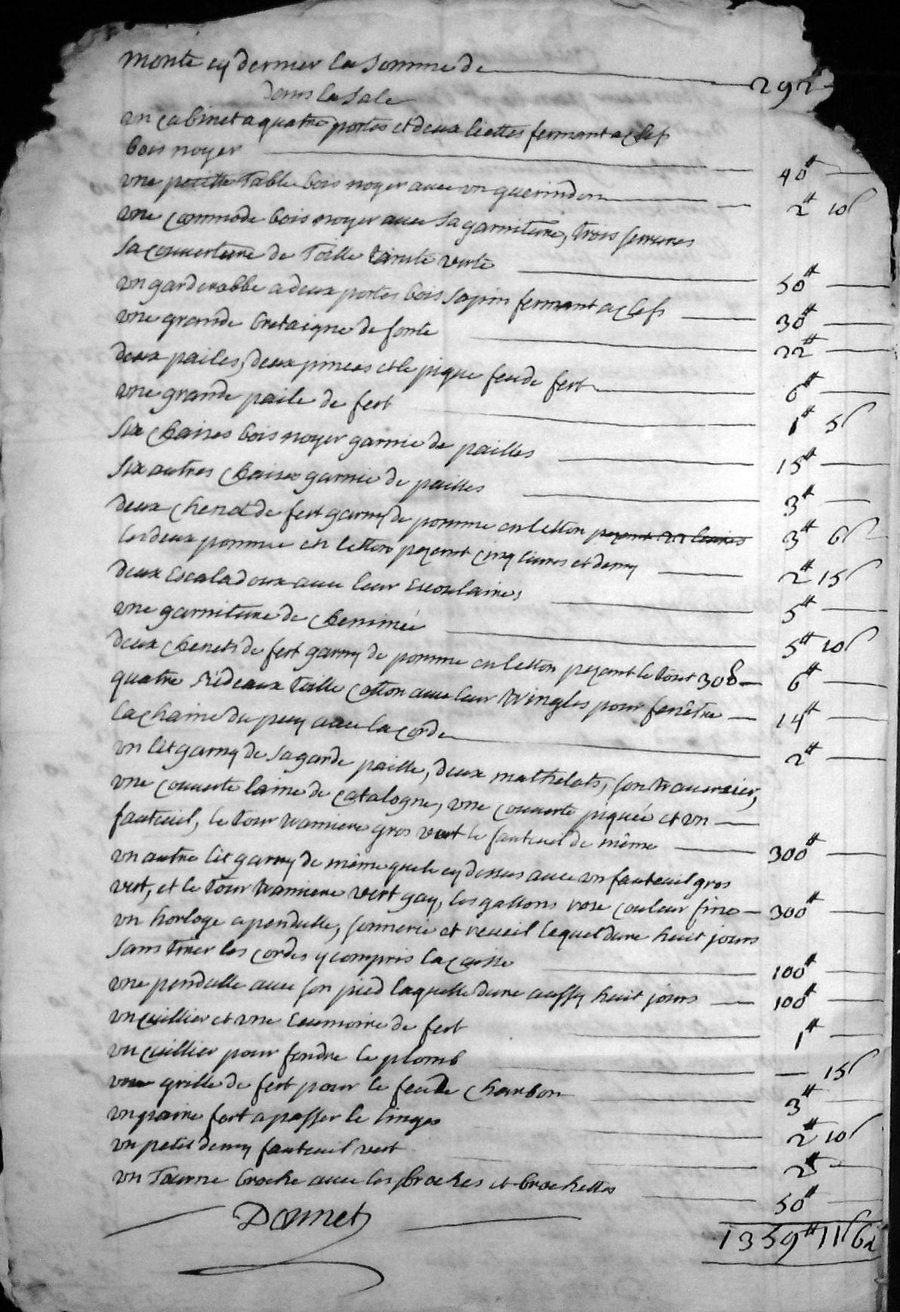 monté cy dernier la somme de 292#
dans la sale
un cabinet a quatre portes et deux liettes fermant a clefs
bois noyer 40#
une petite table bois noyer avec un guerindon 2# 10s
une commode bois noyer avec sa garniture, trois serrures
sa couverture de toille cirée verte 50#
un garderabbe a deux portes bois sapin fermant a clefs 30#
une grande bretaigne de fonte 22#
deux pailes, deux pinces et le pique feu de fert 6#
une grande paile de fert 1# 5s
six chaises bois noyer garnie de pailles 15#
six autres chaises garnie de pailles 3#
deux chenet de fert garny de pomme en letton 3# 6s
les deux pomme en letton pezent cinq livres et demy 2# 15s
deux escaladoux avec leur 5#
une garniture de cheminée 5# 10s
deux chenets de fert garny de pomme en letton pezent le tout 30 6#
quatre rideaux toille cotton avec leur tringles pour fenêtre 14#
la chaine du puy avec la corde 2#
un lit garny de sa garde paille, deux mathelats, son traversier,
une couverte laine de catalogne, une couverte piquée et un
fauteuil, le tour gros vert le fauteuil de même 300#
un autre lit garny de même que le cy dessus avec un fauteuil gros
vert, et le tour vert gay, les gallons rose couleur fine 300#
un horloge a pendulle, sonnerie et reveil lequel dure huit jours
sans tirer les cordes y compris la caisse 100#
une pendulle avec son pied laquelle dure aussy huit jours 100#
un cuillier et une ecumoire de fert 1#
un cuillier pour fondre le plomb 15s
une grille de fert pour le feu de charbon 3#
un paire fert a passer le linges 2# 10s
un petit demy fauteuil vert 2#
un tourne broche avec les broches et brochettes 50#
Domet
1359# 11s 6d